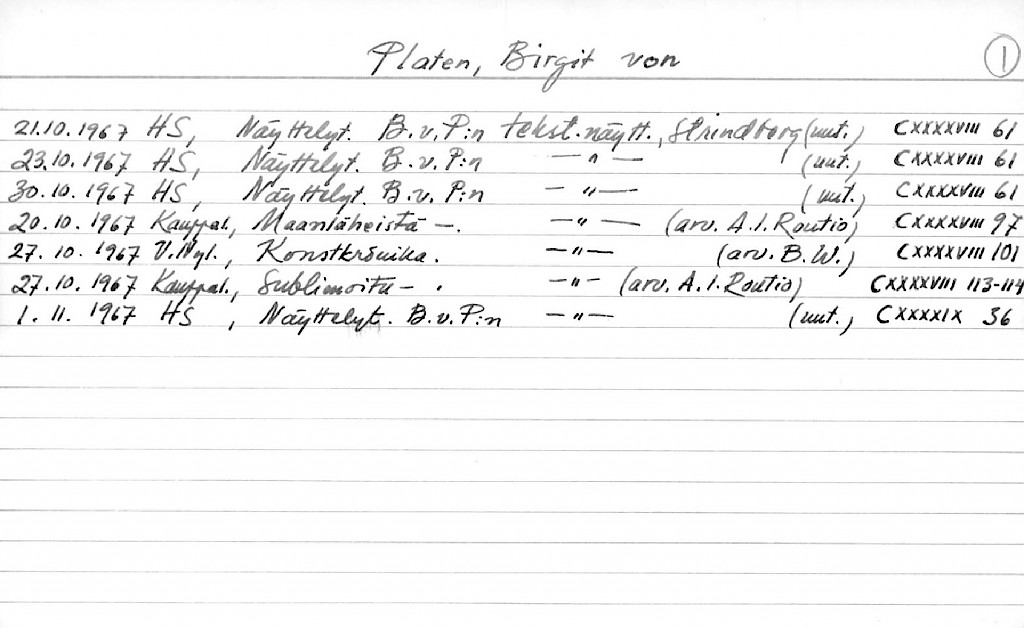 Platen, Birgit von 1
21.10.1967 HS, Näyttelyt. B.v.P:n tekst.näytt., Strindberg (uut.) CXXXXVIII 61
23.10.1967 HS, Näyttelyt. B.v.P:n —"— (uut.) CXXXXVIII 61
30.10.1967 HS, Näyttelyt. B.v.P:n —"— (uut.) CXXXXVIII 61
20.10.1967 Kauppal., Maanläheistä —. —"— (arv. A.I. Routio) CXXXXVIII 97
27.10.1967 V.Nyl., Konstkrönika. —"— (arv. B.W.) CXXXXVIII 101
27.10.1967 Kauppal., Sublimoitu — . —"— (arv. A.I. Routio) CXXXXVIII 113-114
1.11.1967 HS, Näyttelyt. B.v.P:n —"— (uut.) CXXXXIX 36